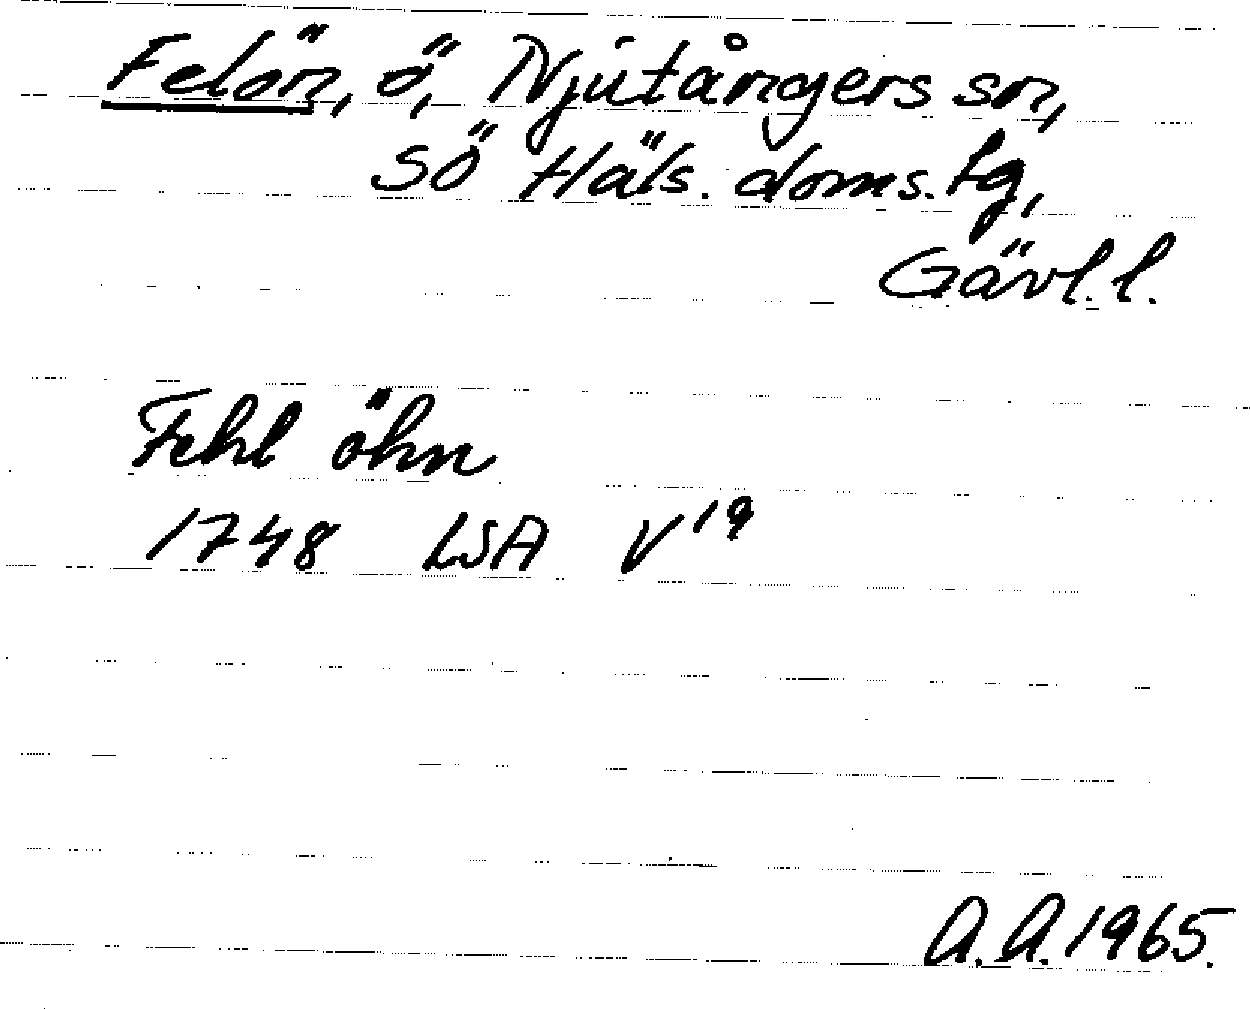 Felön, ö, Njutångers sn,
SÖ Häls. doms. tg,
Gävl. l.
Fehl öhn
1748 LSA V¹⁹
A.A. 1965.